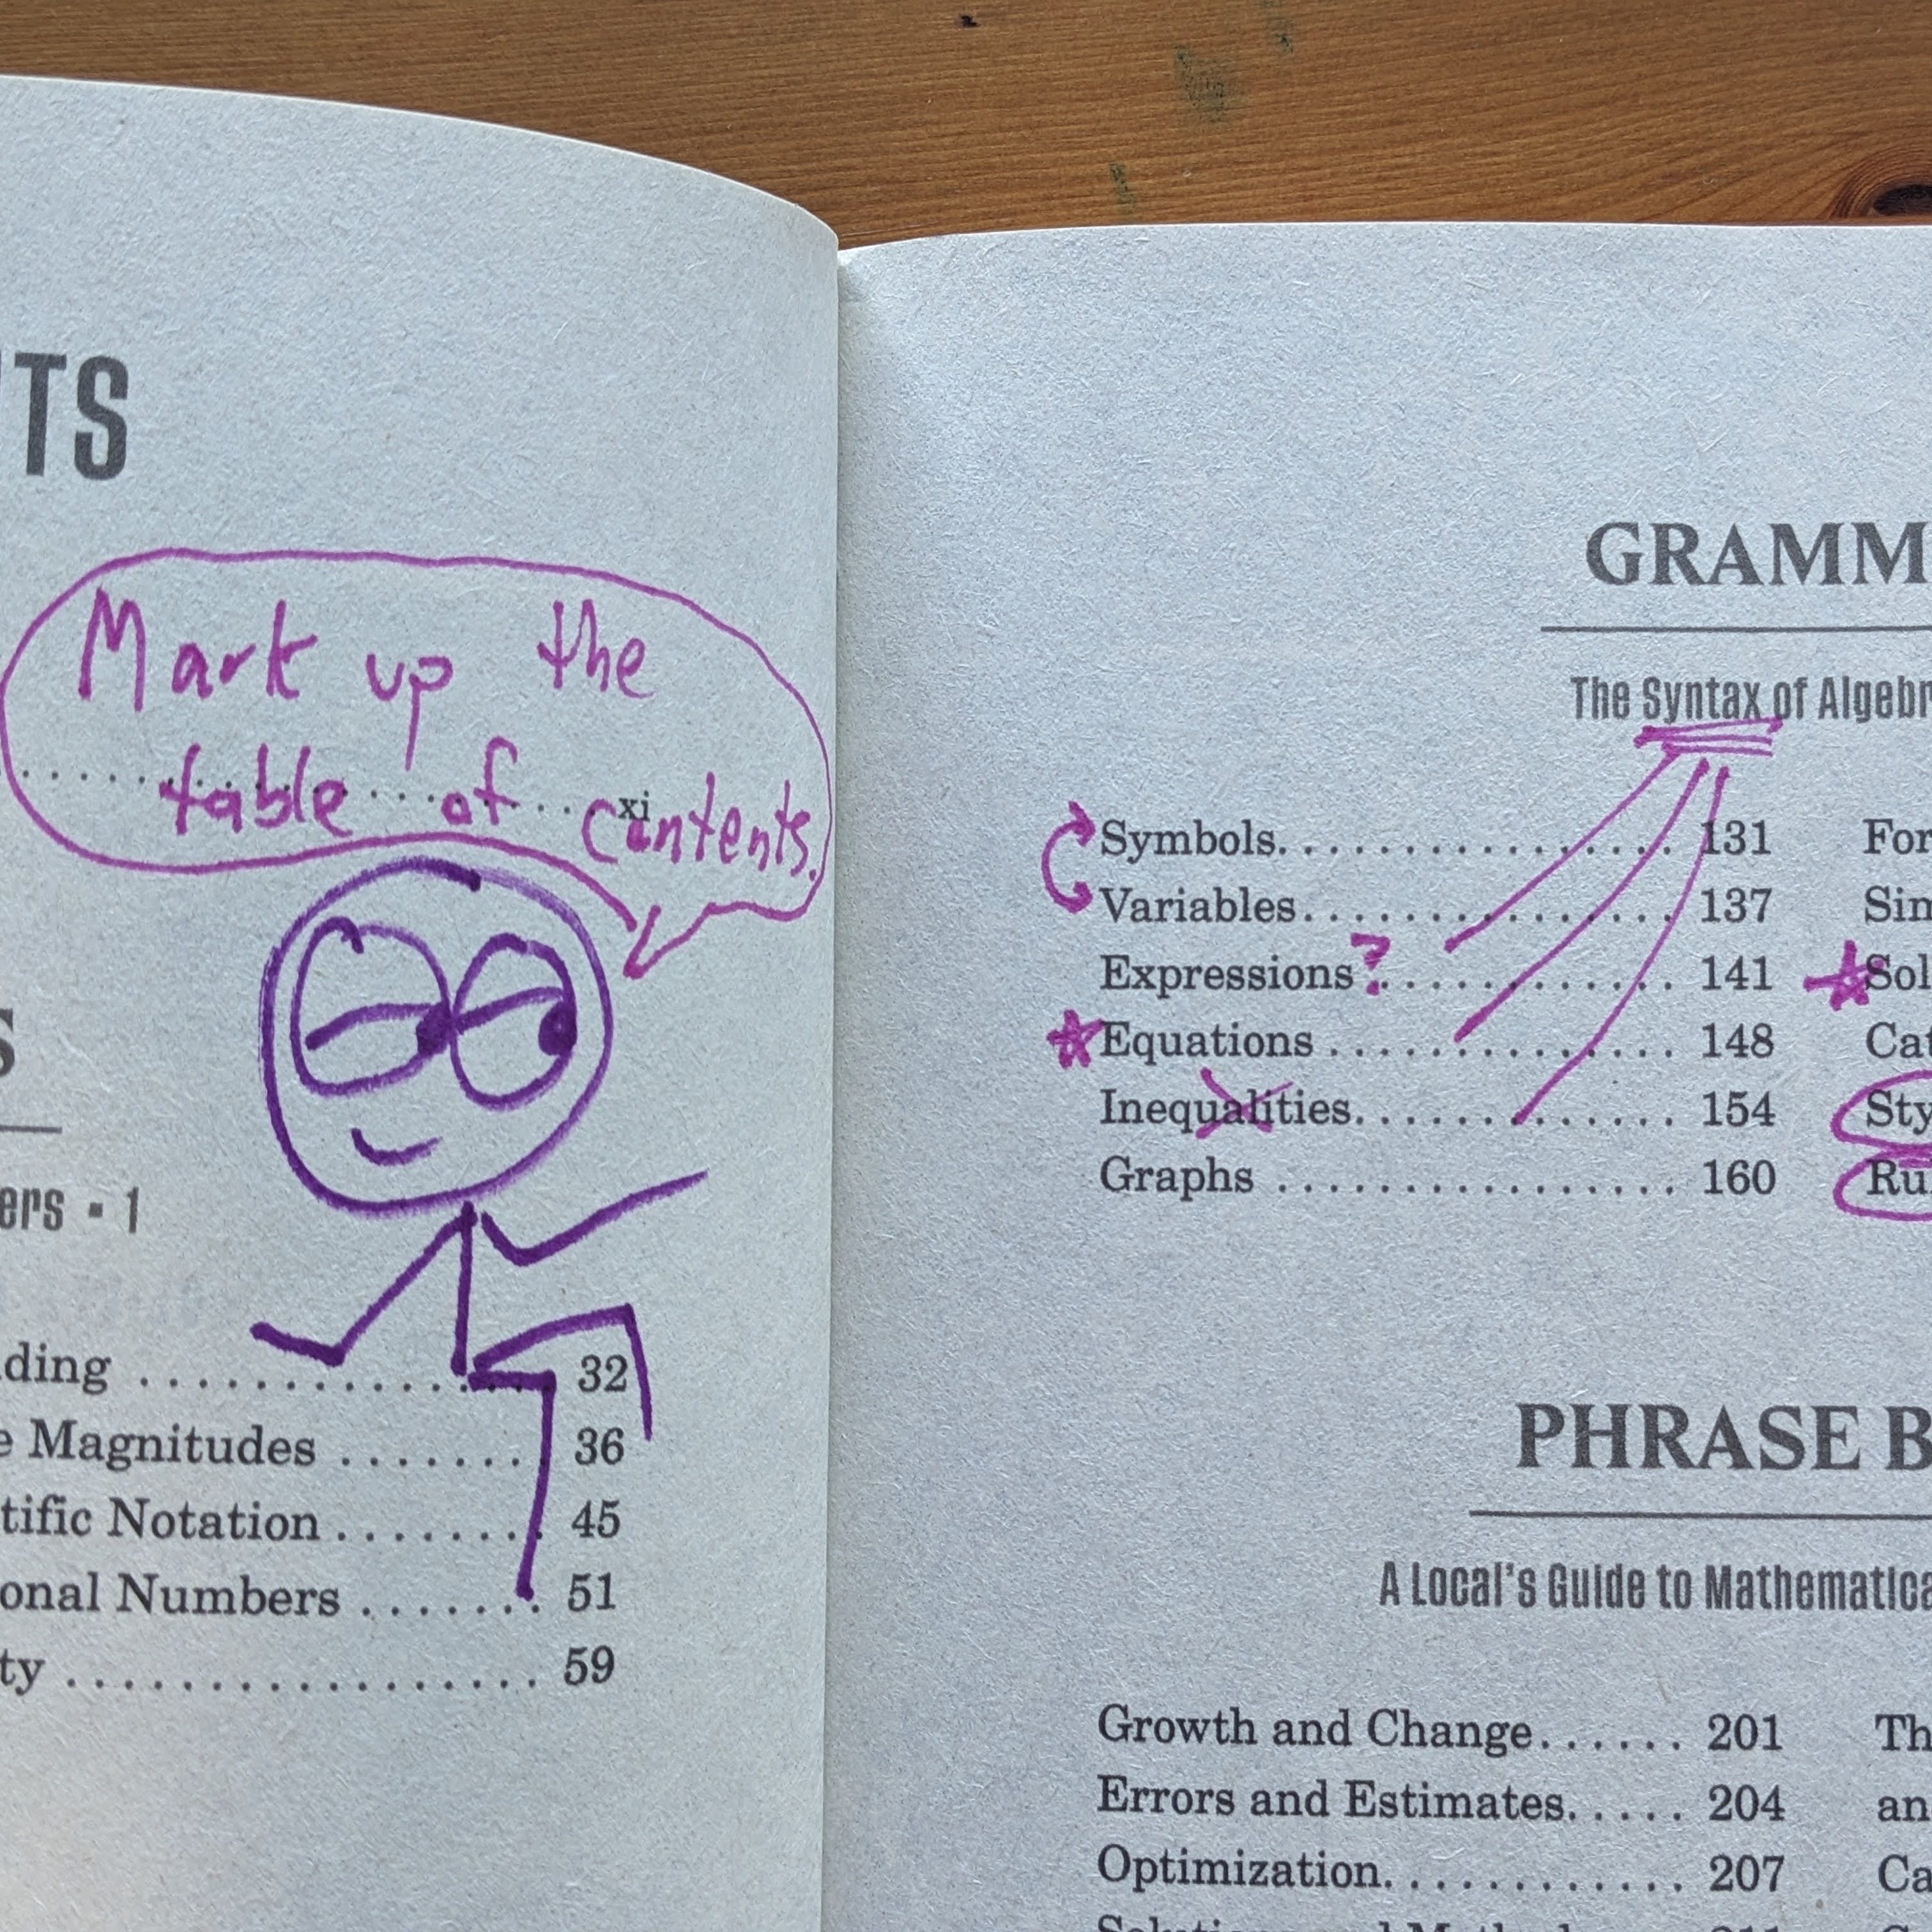 TS
Mark up the
table of contents.
xi
S
ers ▪ 1
ding . . . . . . . . . . . . . . . . 32
e Magnitudes . . . . . . . 36
tific Notation . . . . . . . . 45
onal Numbers . . . . . . . 51
ty . . . . . . . . . . . . . . . . . 59
GRAMM
The Syntax of Algebr
Symbols. . . . . . . . . . . . . . . . . 131 For
Variables. . . . . . . . . . . . . . . . 137 Sim
Expressions? . . . . . . . . . . . . 141 Sol
Equations . . . . . . . . . . . . . . . 148 Cat
Inequalities. . . . . . . . . . . . . . 154 Sty
Graphs . . . . . . . . . . . . . . . . . 160 Ru
PHRASE B
A Local's Guide to Mathematica
Growth and Change. . . . . . 201 Th
Errors and Estimates. . . . . 204 an
Optimization. . . . . . . . . . . . 207 Ca